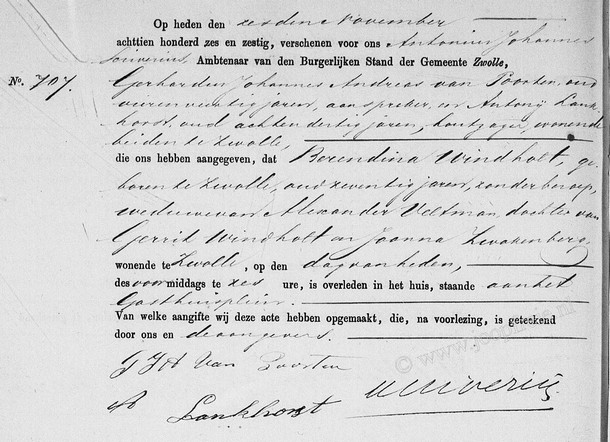 Op heden den zesden November
achttien honderd zes en zestig, verschenen voor ons Antonius Johannes
Souverius, Ambtenaar van den Burgerlijken Stand der Gemeente Zwolle,
No. 707. Gerhardus Johannes Andreas van Poorten, oud
vierenveertig jaren, aanspreker, en Antonij Lank
horst, oud achtendertig jaren, houtzager, wonende
beiden te Zwolle,
die ons hebben aangegeven, dat Berendina Windholt, ge
boren te Zwolle, oud zeventig jaren, zonder beroep,
weduwe van Alexander Veltman, dochter van
Gerrit Windholt en Joanna Zwakenberg,
wonende te Zwolle, op den dag van heden,
des voormiddags te zes ure, is overleden in het huis, staande aan het
Gasthuisplein.
Van welke aangifte wij deze acte hebben opgemaakt, die, na voorlezing, is geteekend
door ons en de aangevers.
G J A van Poorten
A Lankhorst